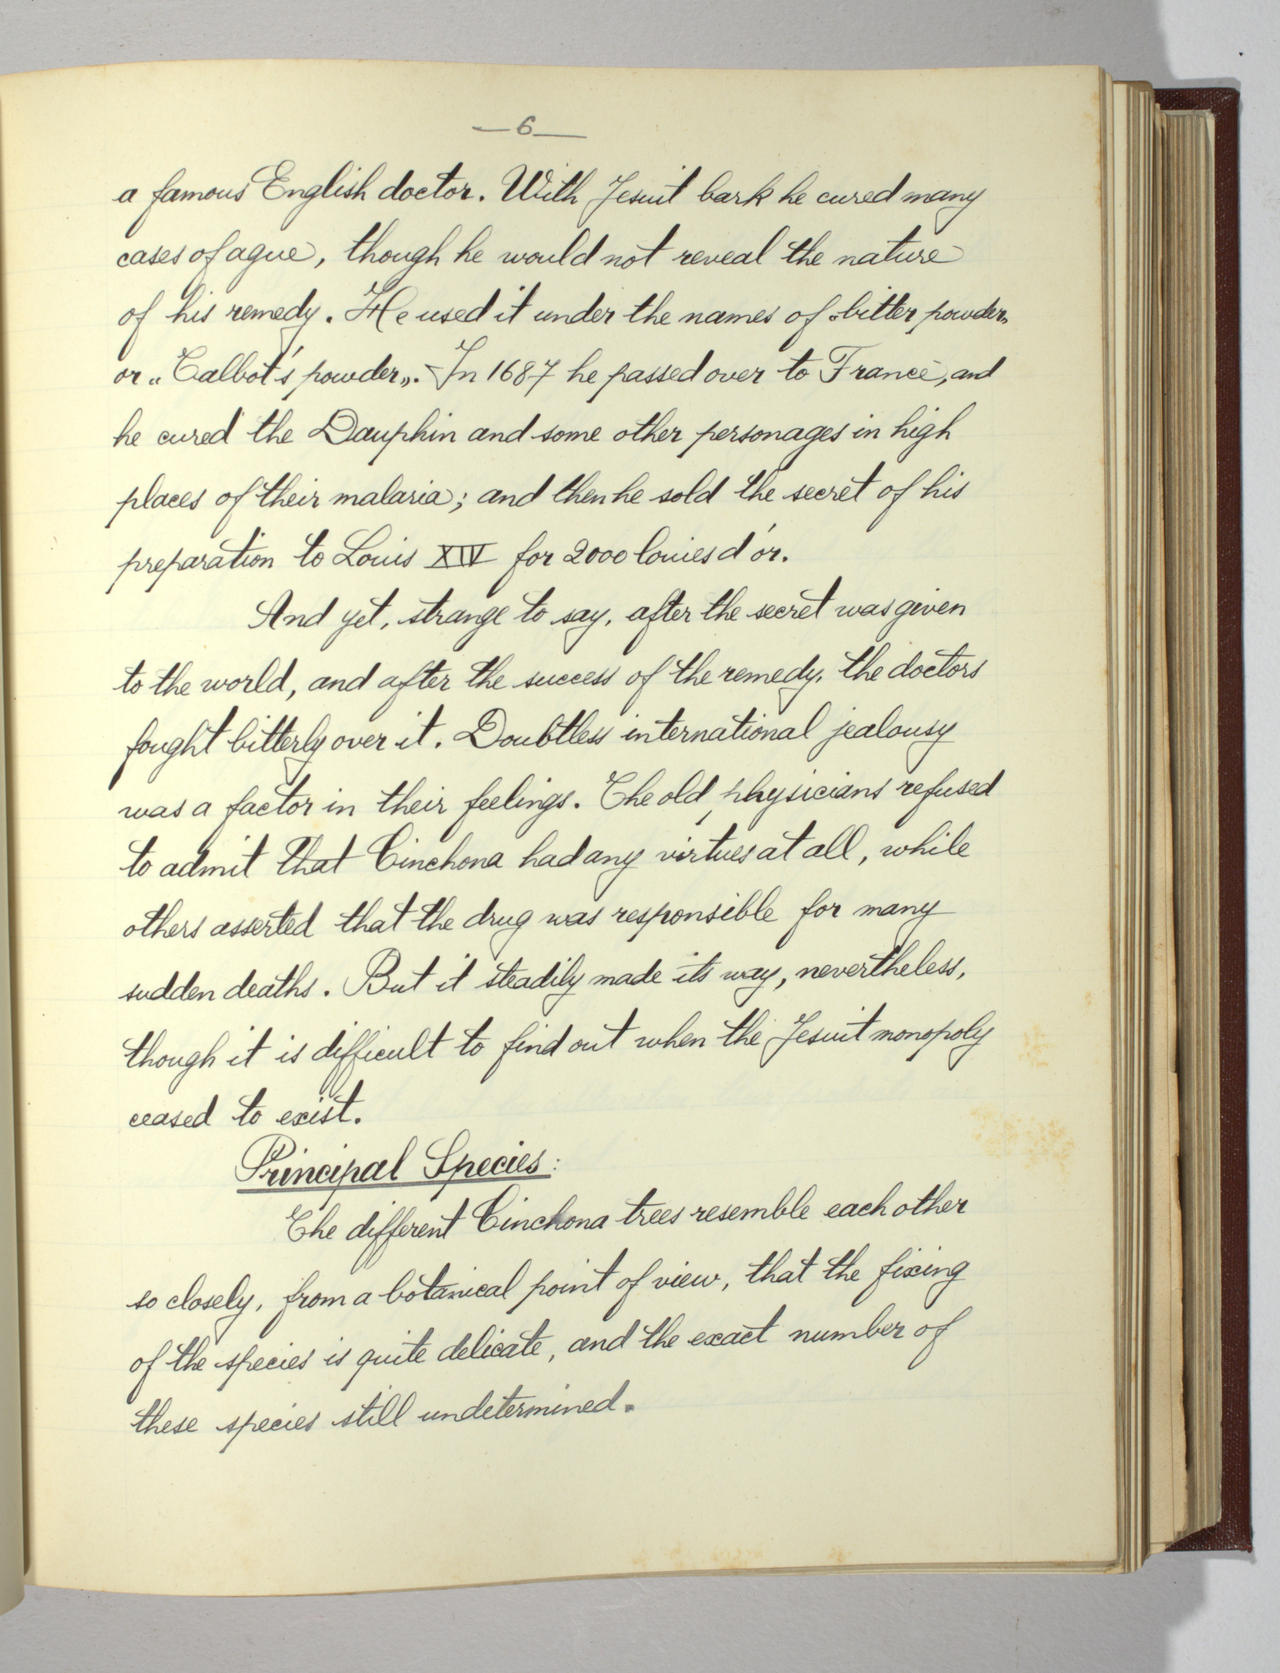 —6—
a famous English doctor. With Jesuit bark he cured many
cases of ague, though he would not reveal the nature
of his remedy. He used it under the names of „bitter powder„
or „Talbot's powder„. In 1687 he passed over to France, and
he cured the Dauphin and some other personages in high
places of their malaria; and then he sold the secret of his
preparation to Louis XIV for 2000 louies d'or.
And yet, strange to say, after the secret was given
to the world, and after the success of the remedy, the doctors
fought bitterly over it. Doubtless international jealousy
was a factor in their feelings. The old physicians refused
to admit that Cinchona had any virtues at all, while
others asserted that the drug was responsible for many
sudden deaths. But it steadily made its way, nevertheless,
though it is difficult to find out when the Jesuit monopoly
ceased to exist.
Principal Species:
The different Cinchona trees resemble each other
so closely, from a botanical point of view, that the fixing
of the species is quite delicate, and the exact number of
these species still undetermined.